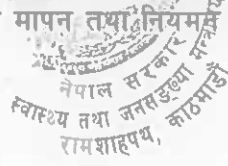 मापन तथा नियमन
नेपाल सरकार
स्वास्थ्य तथा जनसङ्ख्या मन्त्रा
रामशाहपथ, काठमाडौं